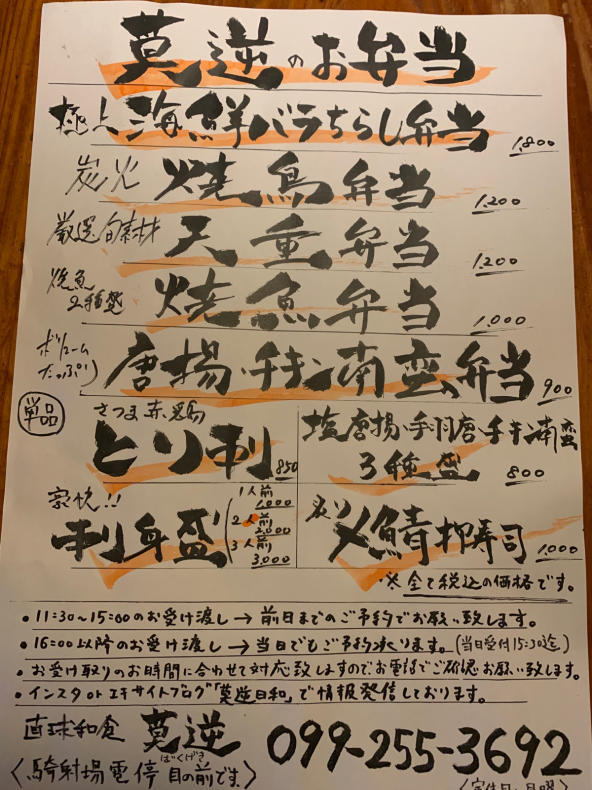 莫逆のお弁当
極上海鮮バラちらし弁当 1,800
炭火 焼鳥弁当 1,200
厳選旬素材 天重弁当 1,200
焼魚2種盛 焼魚弁当 1,000
ボリュームたっぷり 唐揚・チキン南蛮弁当 900
単品
さつま赤鶏 とり刺 850
塩唐揚・手羽唐・チキン南蛮
3種盛 800
豪快!! 刺身盛
1人前 1,000
2人前 2,000
3人前 3,000
炙り〆鯖押寿司 1,000
※全て税込の価格です。
・11:30~15:00のお受け渡し→前日までのご予約でお願い致します。
・16:00以降のお受け渡し→当日でもご予約承ります。(当日受付15:30迄)
・お受け取りのお時間に合わせて対応致しますのでお電話でご確認お願い致します。
・インスタorエキサイトブログ"莫逆日和"で情報発信しております。
直球和食 莫逆 099-255-3692
ばくげき
〈騎射場電停 目の前です〉